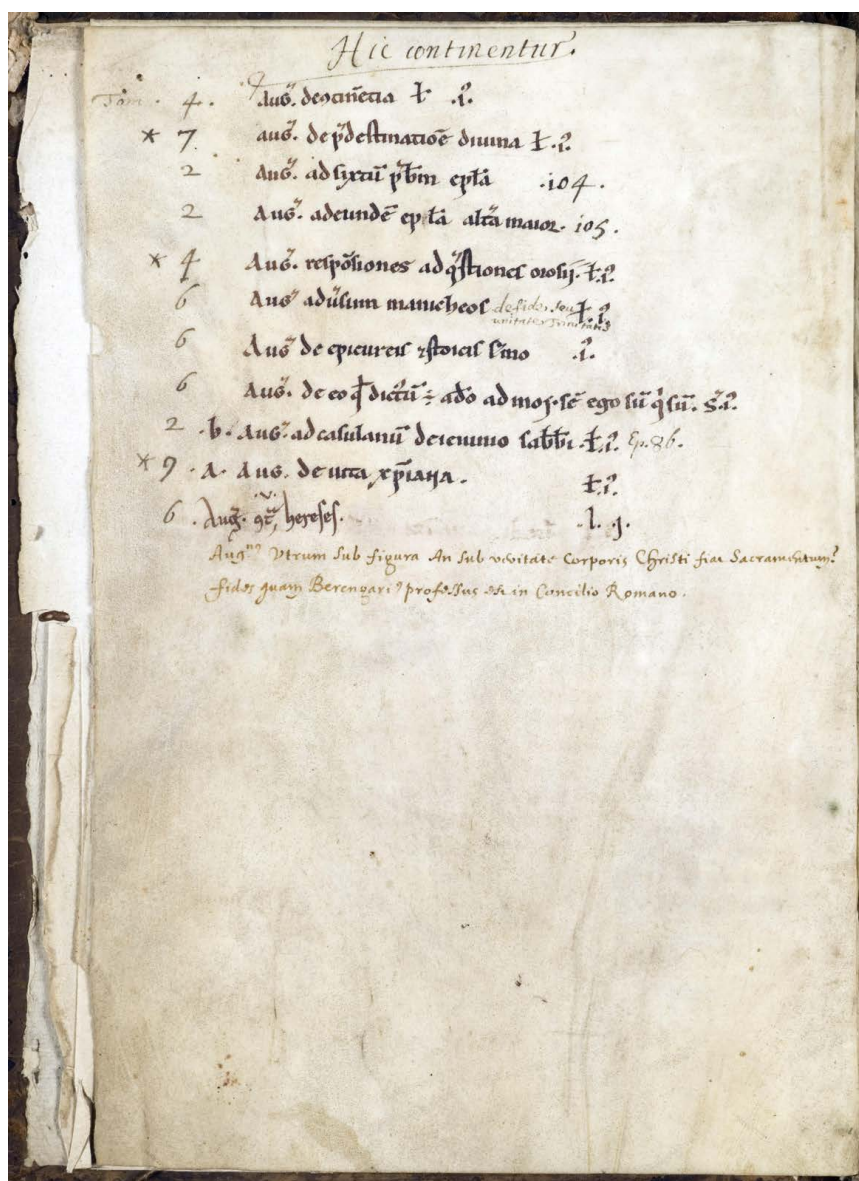 Hic continentur.
Tom. 4. Augͥ. de ɔtinētia ƚ .i?.
* 7. augͥ. de p̄destinatiōe diuina ƚ.i?.
2 Augͥ. ad sixtū p̄bm ep̄la .104.
2 Augͥ. ad eundē ep̄la altͣa maior. 105.
* 4 Augͥ. respōsiones ad q̄stiones orosij. ƚ.i?
6 Augͥ adūsum manicheos de fide, seu ƚ.i?
unitate Trinitatis
6 Augͥ de epicureis ⁊ stoicis s̄mo .i?.
6 Augͥ. de eo qd̄ dictū ÷ a dō ad moy.sē ego sū qͥ sū. s̄.i?.
2 .b. Augͥ ad casulanū de ieiunio sabb̄i ƚ.i?. Ep. 86.
* 9. .a. Aug. de uita xp̄iana. ƚ.i?.
6. Augͥ. ɔͭ, hereses. .l. j.
Augⁿ⁹ Vtrum sub figura An sub veritate Corporis Christi fiat Sacramentum?
fides quam Berengari⁹ professus est in Concilio Romano.